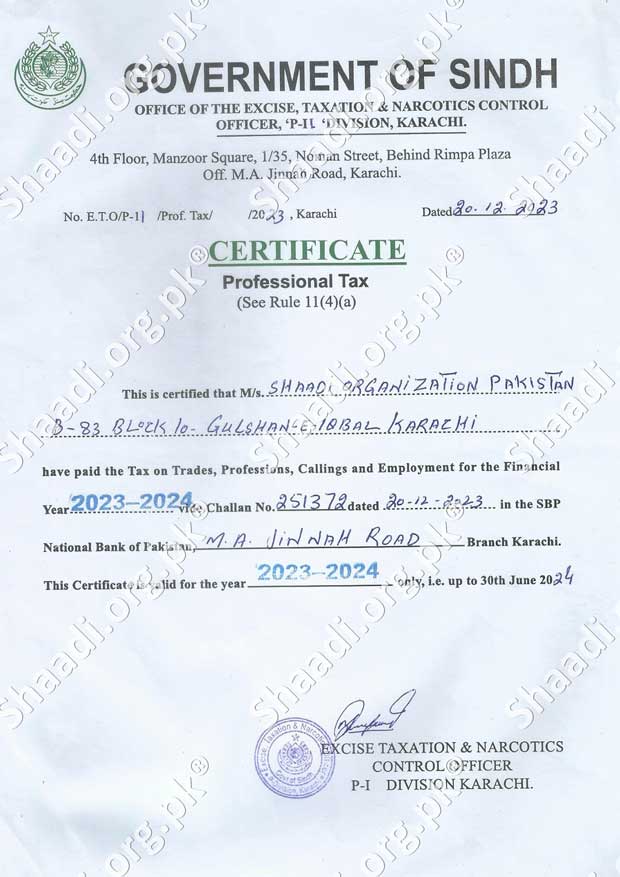 GOVERNMENT OF SINDH
OFFICE OF THE EXCISE, TAXATION & NARCOTICS CONTROL
OFFICER, 'P-II 'DIVISION, KARACHI.
4th Floor, Manzoor Square, 1/35, Noman Street, Behind Rimpa Plaza
Off. M.A. Jinnah Road, Karachi.
No. E.T.O/P-11 /Prof. Tax/ /2023, Karachi Dated 20.12.2023
CERTIFICATE
Professional Tax
(See Rule 11(4)(a)
This is certified that M/s. SHAADI ORGANIZATION PAKISTAN
B-83 BLOCK 10- GULSHAN-E-IQBAL KARACHI
have paid the Tax on Trades, Professions, Callings and Employment for the Financial
Year 2023-2024 vide Challan No. 251372 dated 20-12-2023 in the SBP
National Bank of Pakistan, M.A. JINNAH ROAD Branch Karachi.
This Certificate is valid for the year 2023-2024 only, i.e. up to 30th June 2024
EXCISE TAXATION & NARCOTICS
CONTROL OFFICER
P-I DIVISION KARACHI.
Excise, Taxation & Narcotics
Govt of Sindh
Shaadi.org.pk®
Shaadi.org.pk®
Shaadi.org.pk®
Shaadi.org.pk®
Shaadi.org.pk®
Shaadi.org.pk®